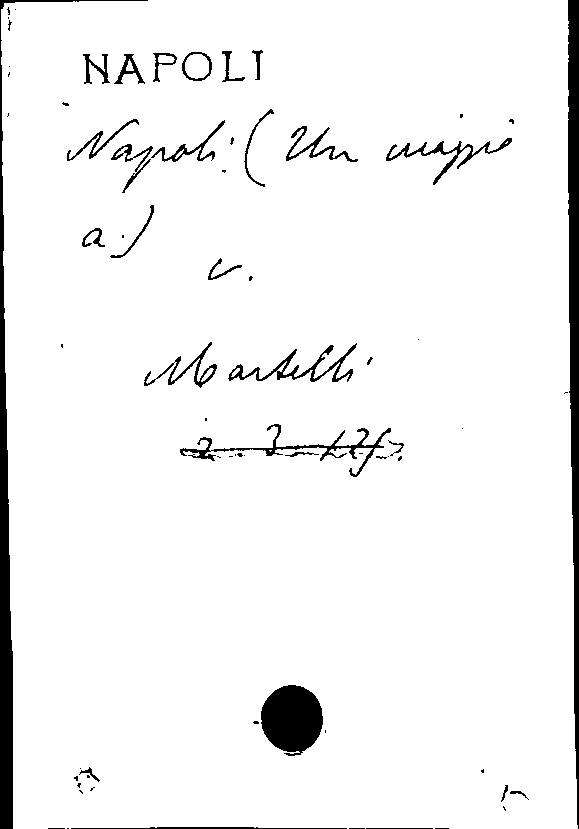 NAPOLI
Napoli (Un viaggio
a.)
v.
Martelli
2. 3.